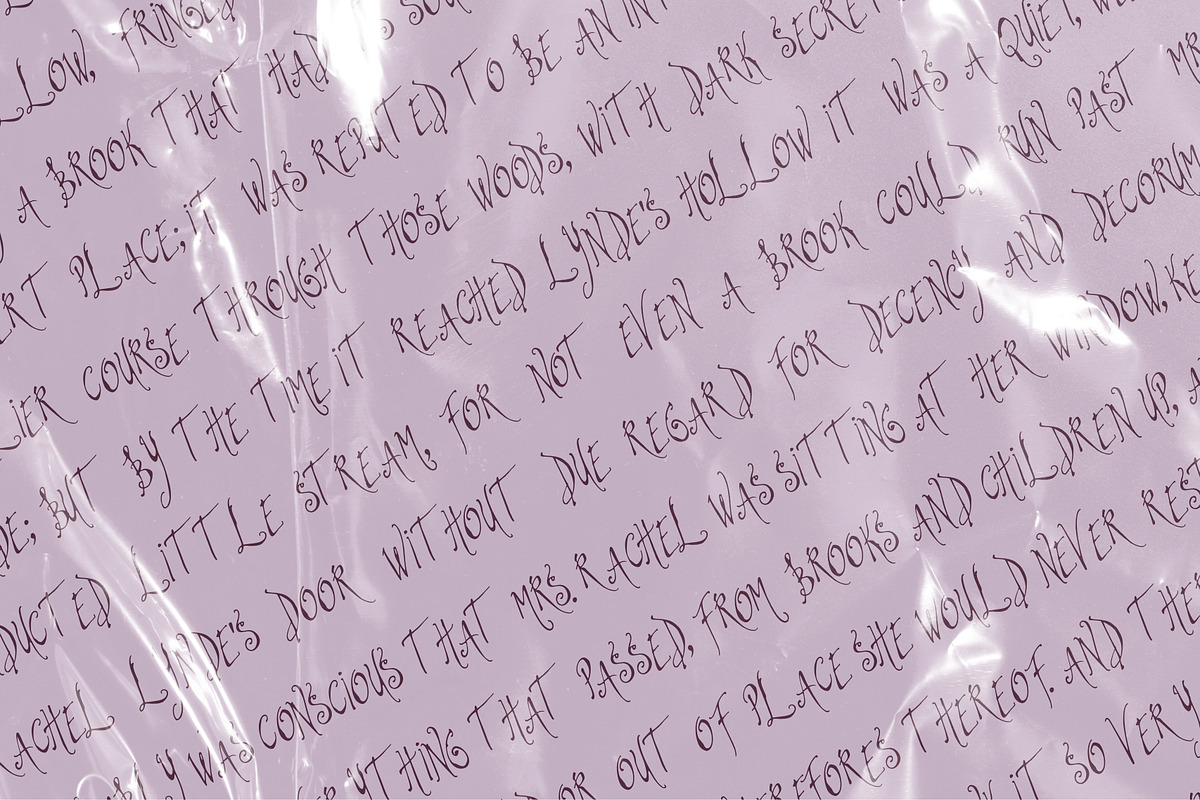 LLOW, FRINGED
A BROOK THAT HAD SOU
ERT PLACE; iT WAS REPUTED TO BE AN INT
LiER COURSE THROUGH THOSE WOODS, WiTH DARK SECRET
DE; BUT BY THE TiME iT REACHED LYNDE'S HOLLOW iT WAS A QUiET, WE
DUCTED LiTTLE STREAM, FOR NOT EVEN A BROOK COULD RUN PAST MR
RACHEL LYNDE'S DOOR WiTHOUT DUE REGARD FOR DECENCY AND DECORUM
Y WAS CONSCiOUS THAT MRS. RACHEL WAS SiTTiNG AT HER WiNDOW, KE
ERYTHiNG THAT PASSED, FROM BROOKS AND CHiLDREN UP, A
OR OUT OF PLACE SHE WOULD NEVER REST
EREFORES THEREOF. AND THE
iT SO VERY